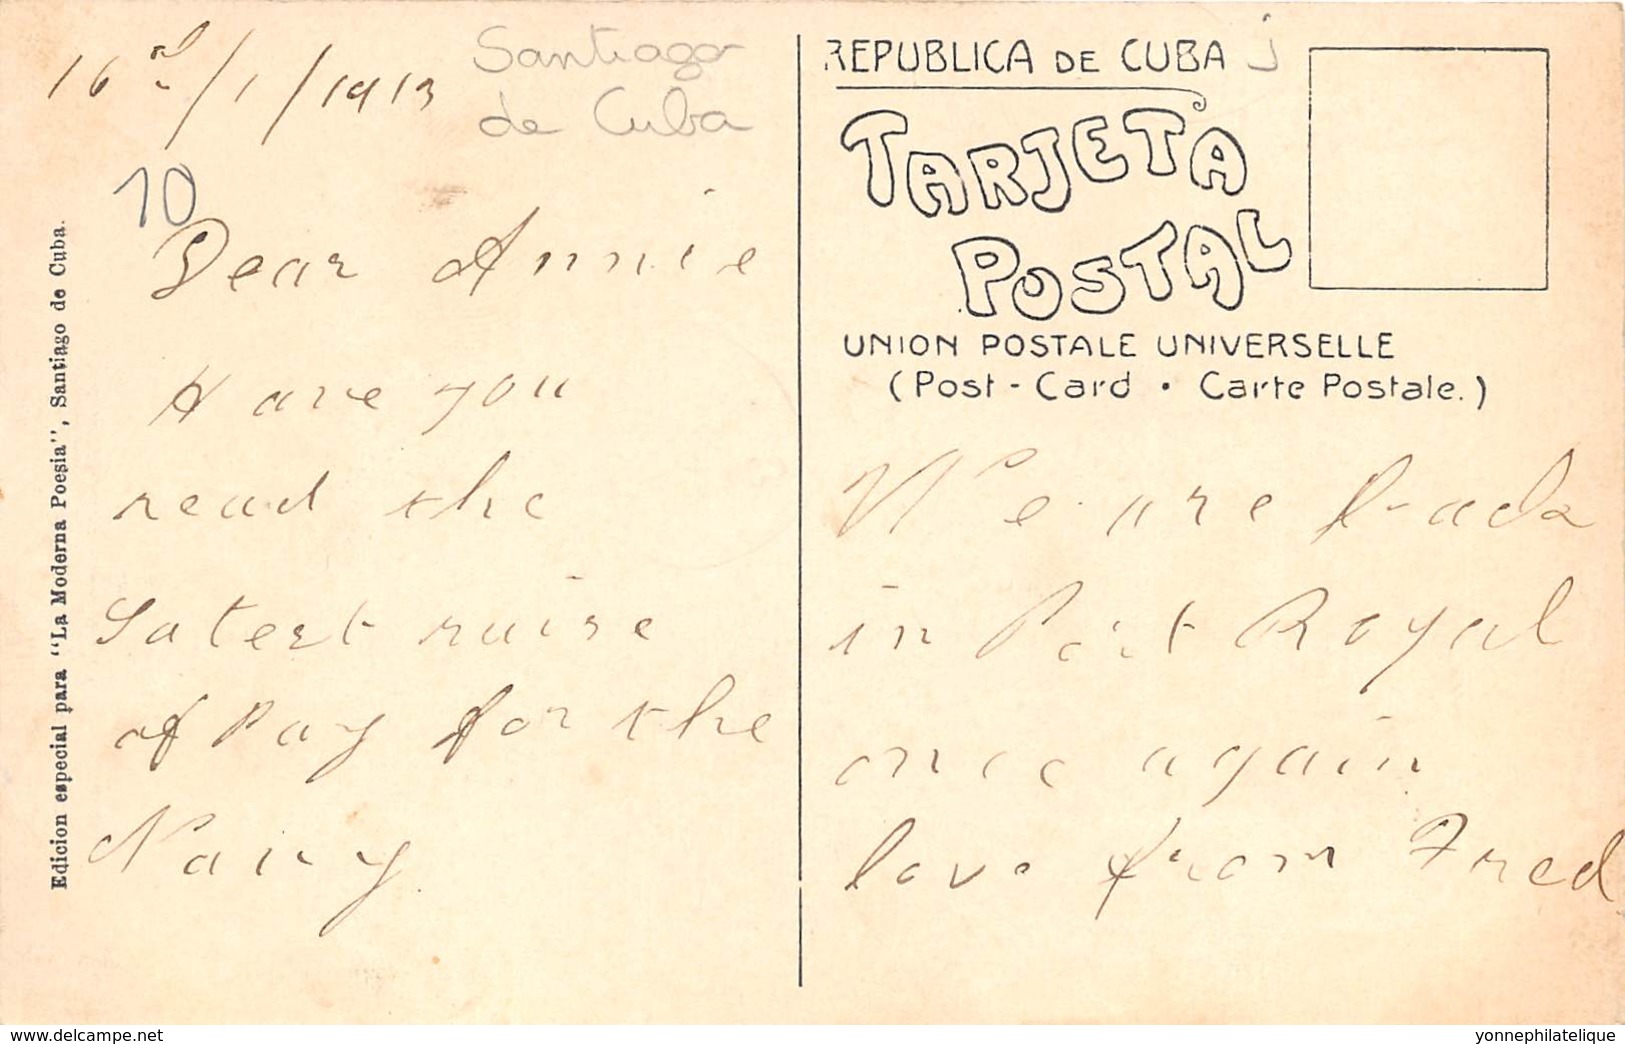 16 /1/1913
Santiago
de Cuba
10
Dear Annie
Have you
read the
Latest raise
of Pay for the
Navy.
Edicion especial para "La Moderna Poesia", Santiago de Cuba.
REPUBLICA DE CUBA
TARJETA
POSTAL
UNION POSTALE UNIVERSELLE
(Post-Card • Carte Postale.)
We are back
in Port Royal
once again
love from Fred
delcampe.net
yonnephilatelique